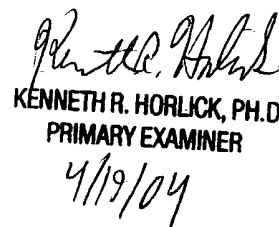 Kenneth R. Horlick
KENNETH R. HORLICK, PH.D
PRIMARY EXAMINER
4/19/04